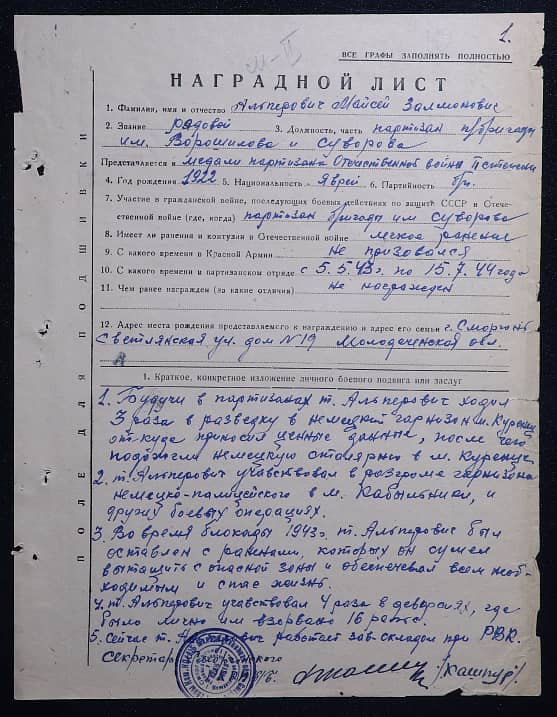 1.
М-II
ВСЕ ГРАФЫ ЗАПОЛНЯТЬ ПОЛНОСТЬЮ
НАГРАДНОЙ ЛИСТ
1. Фамилия, имя и отчество Альперович Майсей Залмонович
2. Звание рядовой 3. Должность, часть партизан п/бригады
им. Ворошилова и Суворова
Представляется к медали партизана Отечественной войны II степени
4. Год рождения 1922 5. Национальность Яврей 6. Партийность б/п.
7. Участие в гражданской войне, последующих боевых действиях по защите СССР и Отече-
ственной войне (где, когда) партизан бригады им Суворова
8. Имеет ли ранения и контузии в Отечественной войне легкое ранение
9. С какого времени в Красной Армии не призовался
10. С какого времени в партизанском отряде с 5.5.43г. по 15.7.44 года
11. Чем ранее награжден (за какие отличия) не награжден
12. Адрес места рождения представляемого к награждению и адрес его семьи г. Сморгонь
Светлянская ул. дом №19 Молодеченская обл.
1. Краткое, конкретное изложение личного боевого подвига или заслуг
1. Будучи в партизанах т. Альперович ходил
3 раза в разведку в немецкий гарнизон м. Куренец
от куда приносил ценные данные, после чего
подожгли немецкую столярню в м. Куренце
2. т. Альперович учавствовал в разгроме гарнизона
немецко-полицейского в м. Кабыльники, и
других боевых операциях.
3. Во время блокады 1943г. т. Альперович был
оставлен с ранеными, которых он сумел
вытащить с опасной зоны и обеспечевал всем необ-
ходимым и спас жизнь.
4. т. Альперович учавствовал 4 раза в деверсиях, где
было лично им взорвано 16 рельс.
5. Сейчас т. Альперович работает зав. складом при РВК.
Секретар
/Кашпур/
ПОЛЕ ДЛЯ ПОДШИВКИ